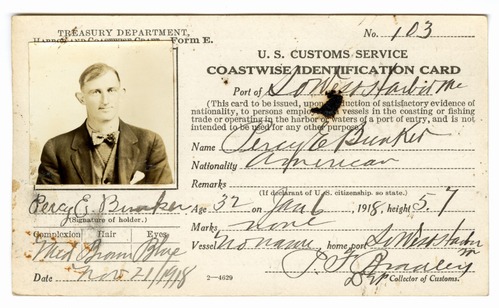 TREASURY DEPARTMENT,
HARBOR AND COASTWISE CRAFT. Form E.
No. 103
U. S. CUSTOMS SERVICE
COASTWISE IDENTIFICATION CARD
Port of So West Harbor Me
(This card to be issued, upon production of satisfactory evidence of
nationality, to persons employed on vessels in the coasting or fishing
trade or operating in the harbor or waters of a port of entry, and is not
intended to be used for any other purpose.)
Name Percy E Bunker
Nationality American
Remarks
(If declarant of U. S. citizenship so state.)
Percy E. Bunker
(Signature of holder.)
Age 32 on Jan 6 1918, height 5.7
Complexion Hair Eyes
Med Brown Blue
Marks none
Vessel no name, home port So West Harbor
Date Nov 21/1918
2—4629
Dep Collector of Customs.